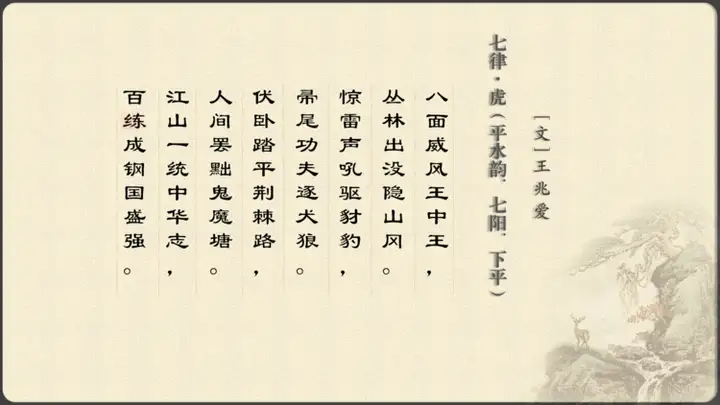 [文]王兆爱
七律·虎(平水韵，七阳，下平)
八面威风王中王，
丛林出没隐山冈。
惊雷声吼驱豺豹，
帚尾功夫逐犬狼。
伏卧踏平荆棘路，
人间罢黜鬼魔塘。
江山一统中华志，
百练成钢国盛强。